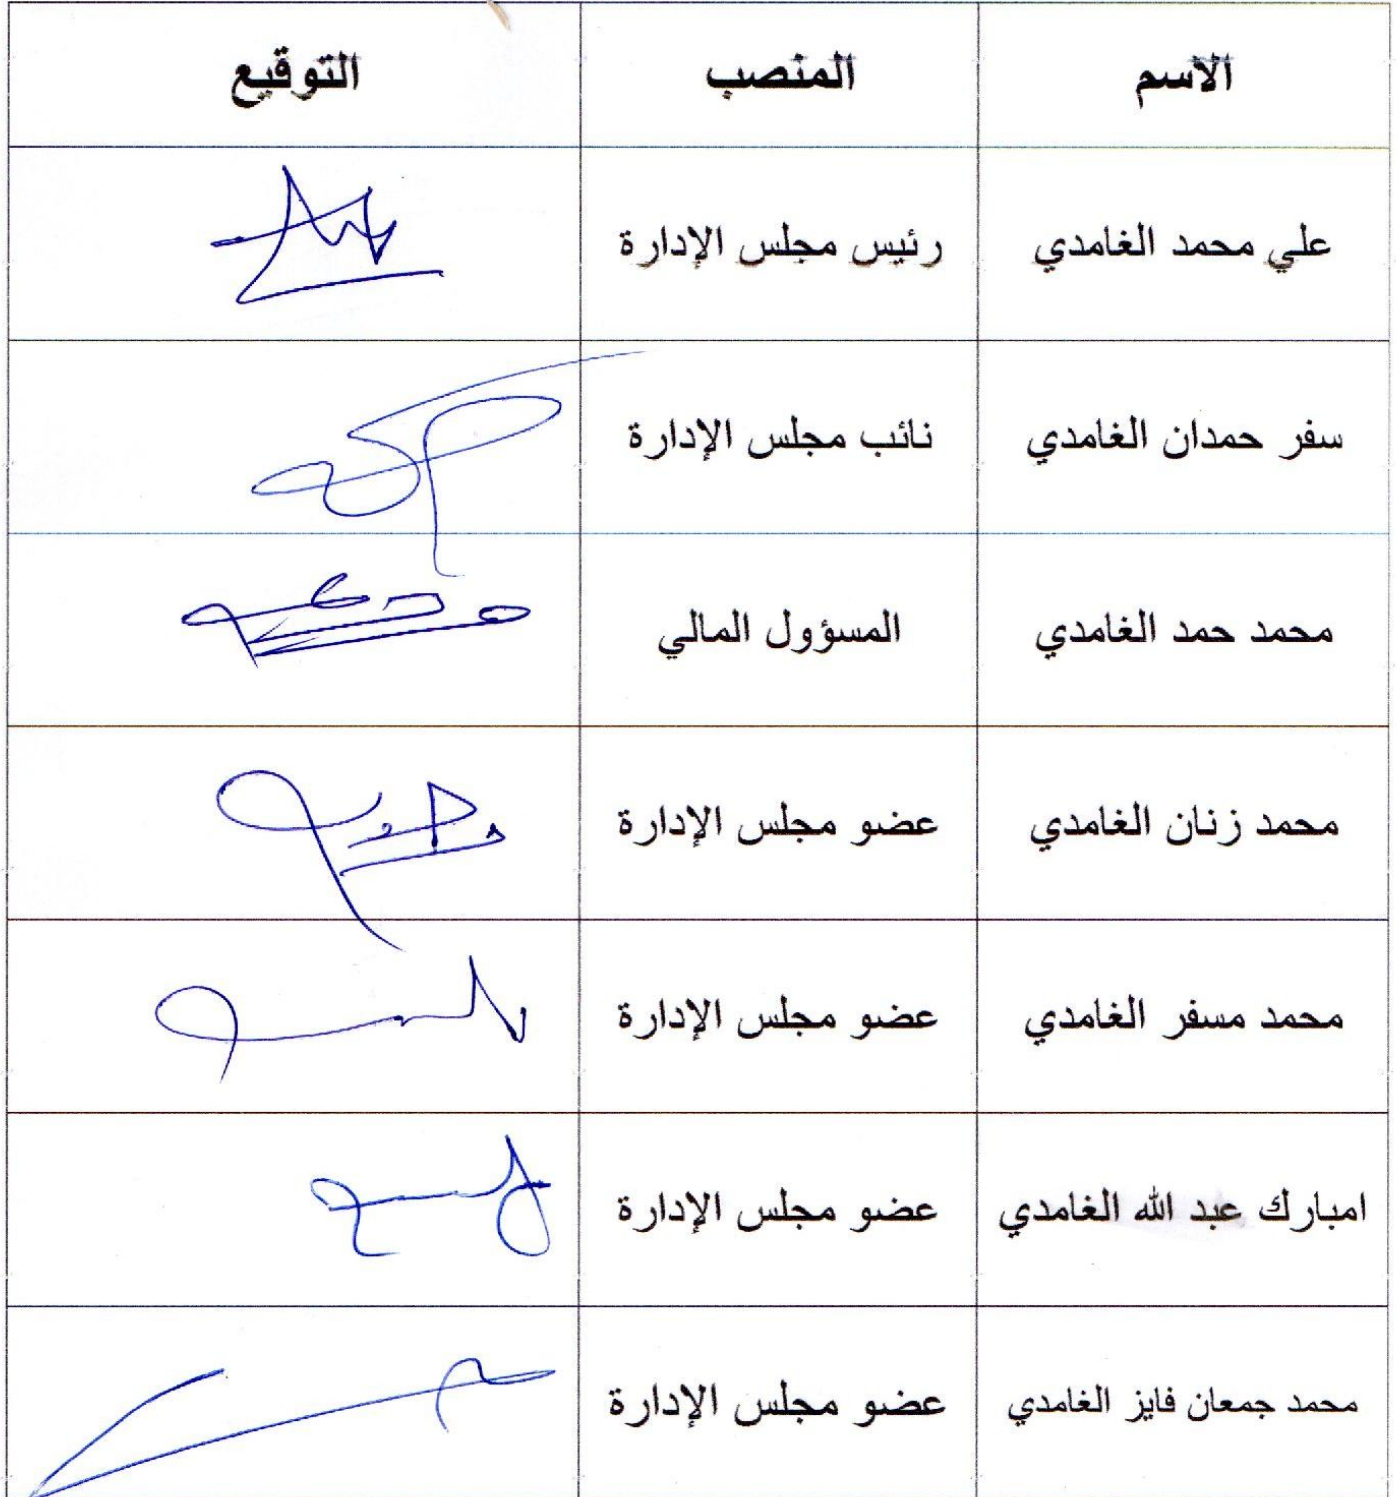 الاسم المنصب التوقيع
علي محمد الغامدي رئيس مجلس الإدارة
سفر حمدان الغامدي نائب مجلس الإدارة
محمد حمد الغامدي المسؤول المالي
محمد زنان الغامدي عضو مجلس الإدارة
محمد مسفر الغامدي عضو مجلس الإدارة
امبارك عبد الله الغامدي عضو مجلس الإدارة
محمد جمعان فايز الغامدي عضو مجلس الإدارة